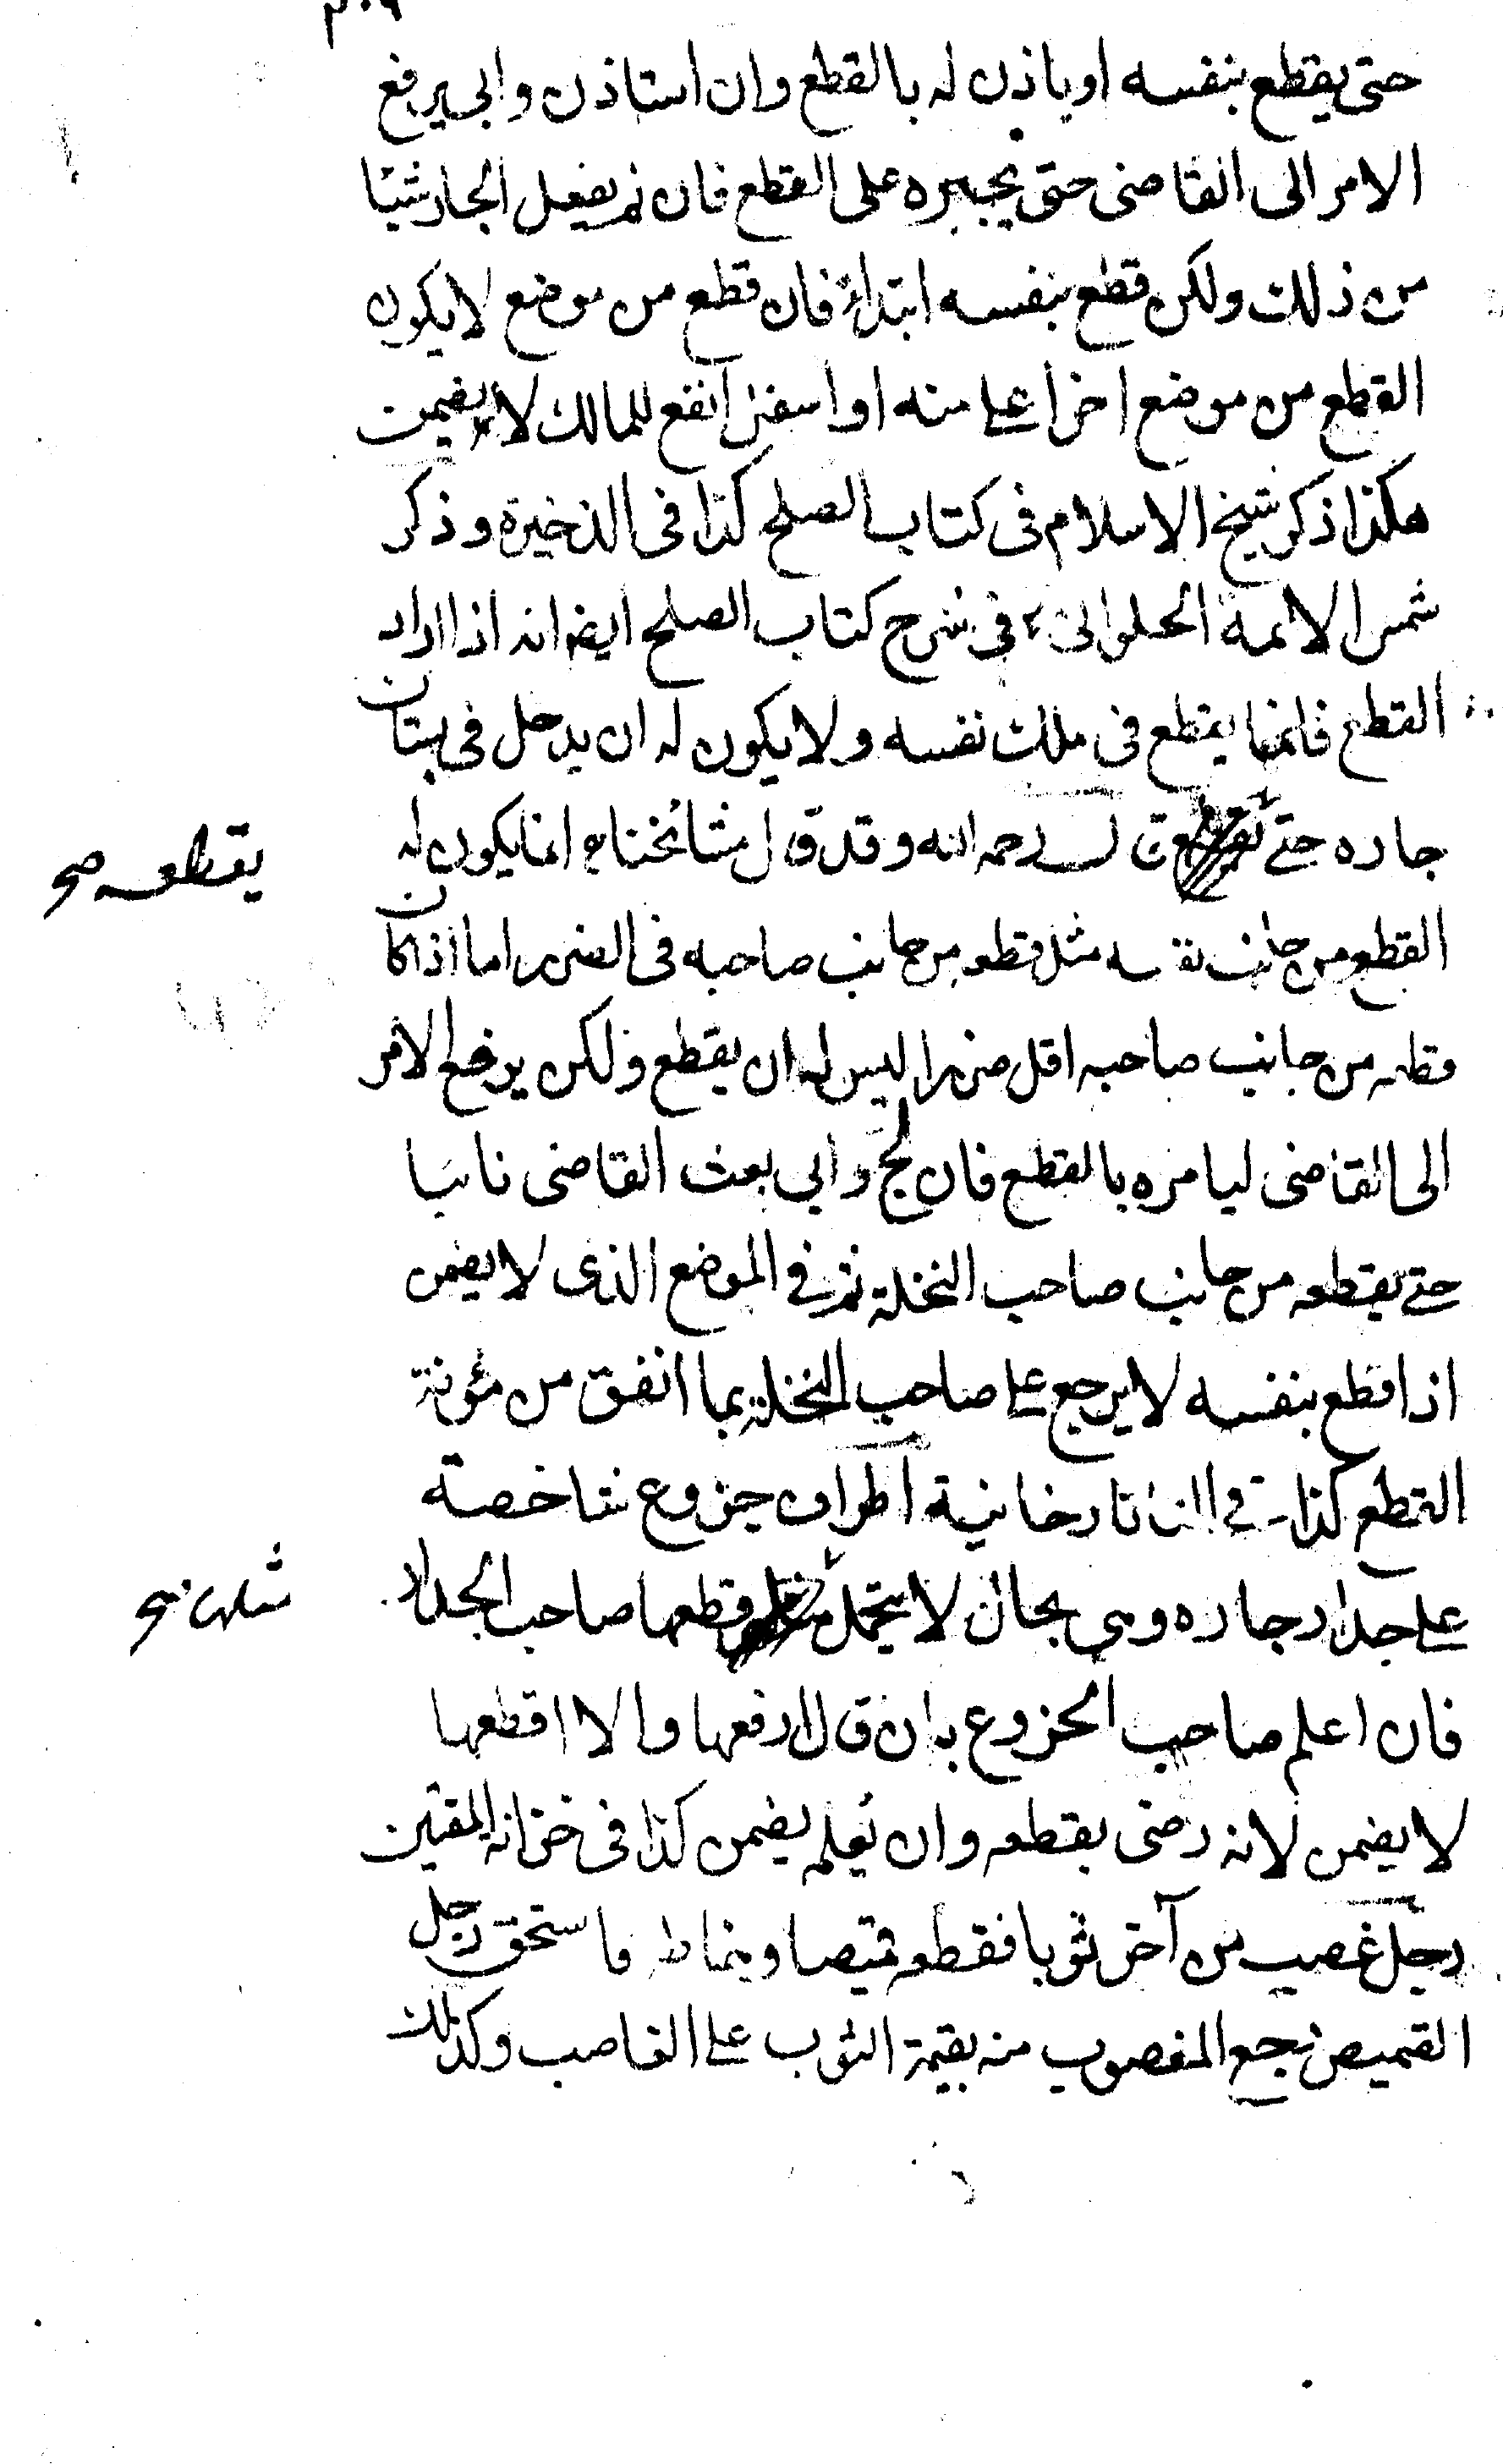 ٢٠٩
حتى يقطع بنفسه او ياذن له بالقطع وان استاذن وابى يرفع
الامر الى القاضى حتى يجبره على القطع فان لم يفعل الجار شيئا
من ذلك ولكن قطع بنفسه ابتداء فان قطع من موضع لا يكون
القطع من موضع اخر اعلى منه او اسفل انفع للمالك لا يضمن
هكذا ذكر شيخ الاسلام فى كتاب الصلح كذا فى الذخيرة وذكر
شمس الائمة الحلوانى فى شرح كتاب الصلح ايضا انه اذا اراد
القطع فانما يقطع فى ملك نفسه ولا يكون له ان يدخل فى بستان
جاره حتى قال رحمه الله وقد قال مشائخنا انما يكون له
يقطعه صح
القطع من جانب نفسه مثل قطعه من جانب صاحبه فى الضرر اما اذا كان
قطعه من جانب صاحبه اقل ضررا ليس له ان يقطع ولكن يرفع الامر
الى القاضى ليامره بالقطع فان لج وابى بعث القاضى نائبا
حتى يقطعه من جانب صاحب النخلة ثم فى الموضع الذى لا يضمن
اذا قطع بنفسه لا يرجع على صاحب النخلة بما انفق من مؤنة
القطع كذا فى التاتارخانية اطراف جزوع شاخصة
على جدار جاره وهى بحال لا يحتمل قطعها صاحب الجدار
شلها صح
فان اعلم صاحب الجزوع بان قال ارفعها والا اقطعها
لا يضمن لانه رضى بقطعه وان يعلمه يضمن كذا فى خزانة المفتين
رجل غصب من آخر ثوبا فقطعه قميصا وخاطه فاستحق رجل
القميص رجع المغصوب منه بقيمة الثوب على الغاصب وكذلك